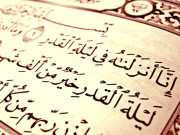 إِنَّا أَنزَلْنَٰهُ فِى لَيْلَةِ ٱلْقَدْرِ ١
لَيْلَةُ ٱلْقَدْرِ خَيْرٌ مِّنْ أَلْفِ
رَبِّهِم مِّن كُلِّ